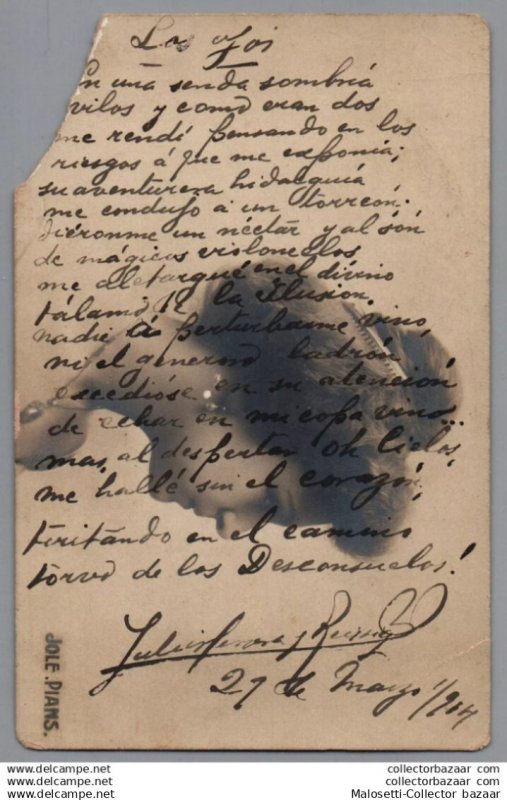 Los Ojos
En una senda sombría
vilos y como eran dos
me rendí pensando en los
riesgos á que me exponia;
su aventurera hidalguía
me condujo á un torreón;
diéronme un néctar y al són
de mágicos violoncellos
me aletargué en el divino
tálamo de la Ilusion.
nadie á perturbarme vino,
ni el generoso ladrón
excedióse en su atención
de echar en mi copa vino...
mas, al despertar oh cielos,
me hallé sin el corazón,
tiritando en el camino
torvo de los Desconsuelos!
Julio Herrera y Reissig
27 de Mayo 1/904
JOLE .PIANS.
www.delcampe.net
www.delcampe.net
www.delcampe.net
collectorbazaar.com
collectorbazaar com
Malosetti-Collector bazaar